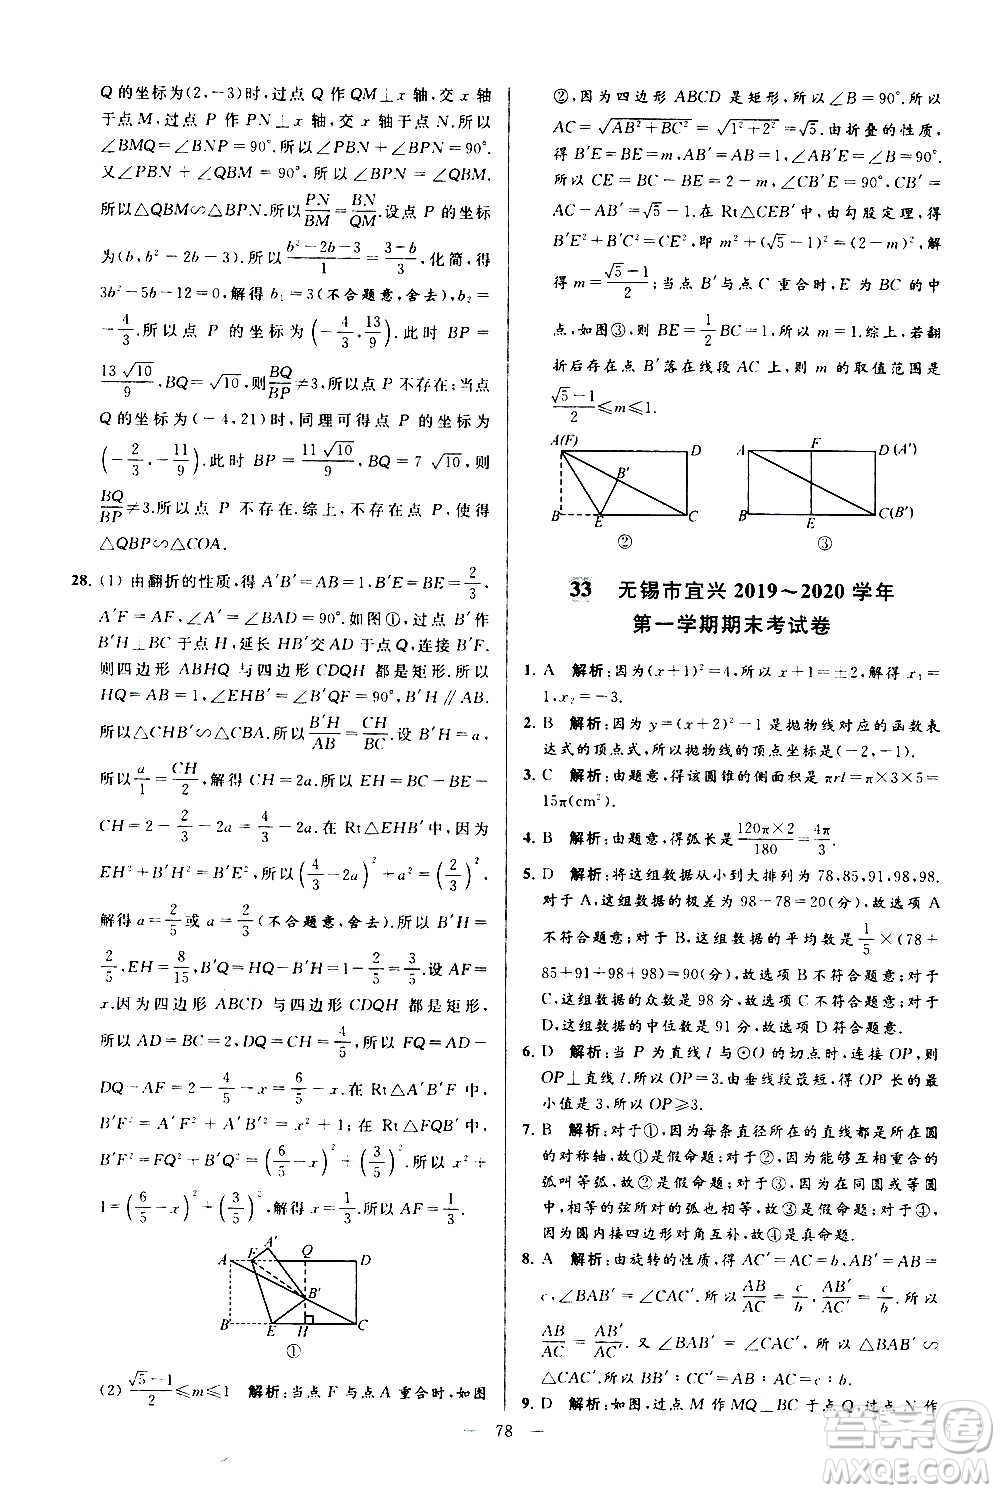 Q的坐标为(2,-3)时,过点Q作QM⊥x轴,交x轴
于点M,过点P作PN⊥x轴,交x轴于点N.所以
∠BMQ=∠BNP=90°.所以∠PBN+∠BPN=90°.
又∠PBN+∠QBM=90°,所以∠BPN=∠QBM.
所以△QBM∽△BPN.所以PN/BM=BN/QM.设点P的坐标
为(b,b²-2b-3).所以(b²-2b-3)/1=(3-b)/3,化简,得
3b²-5b-12=0,解得b₁=3(不合题意,舍去),b₂=
-4/3.所以点P的坐标为(-4/3,13/9).此时BP=
13√10/9,BQ=√10,则BQ/BP≠3,所以点P不存在;当点
Q的坐标为(-4,21)时,同理可得点P的坐标为
(-2/3,-11/9).此时BP=11√10/9,BQ=7√10,则
BQ/BP≠3.所以点P不存在.综上,不存在点P,使得
△QBP∽△COA.
28. (1) 由翻折的性质,得A′B′=AB=1,B′E=BE=2/3,
A′F=AF,∠A′=∠BAD=90°.如图①,过点B′作
B′H⊥BC于点H,延长HB′交AD于点Q,连接B′F.
则四边形ABHQ与四边形CDQH都是矩形.所以
HQ=AB=1,∠EHB′=∠B′QF=90°,B′H∥AB.
所以△CHB′∽△CBA.所以B′H/AB=CH/BC.设B′H=a,
所以a/1=CH/2,解得CH=2a.所以EH=BC-BE-
CH=2-2/3-2a=4/3-2a.在Rt△EHB′中,
EH²+B′H²=B′E²,所以(4/3-2a)²+a²=(2/3)²,
解得a=2/5或a=2/3(不合题意,舍去).所以B′H=
2/5,EH=8/15,B′Q=HQ-B′H=1-2/5=3/5.设AF=
x.因为四边形ABCD与四边形CDQH都是矩形,
所以AD=BC=2,DQ=CH=4/5.所以FQ=AD-
DQ-AF=2-4/5-x=6/5-x.在Rt△A′B′F中,
B′F²=A′F²+A′B′²=x²+1,在Rt△FQB′中,
B′F²=FQ²+B′Q²=(6/5-x)²+(3/5)².所以x²+
1=(6/5-x)²+(3/5)²,解得x=1/3.所以AF=1/3.
A F A′ Q D
B′
B E H C
①
(2) (√5-1)/2≤m≤1 解析:当点F与点A重合时,如图
②,因为四边形ABCD是矩形,所以∠B=90°.所以
AC=√(AB²+BC²)=√(1²+2²)=√5.由折叠的性质,
得B′E=BE=m,AB′=AB=1,∠AB′E=∠B=90°.
所以CE=BC-BE=2-m,∠CB′E=90°,CB′=
AC-AB′=√5-1.在Rt△CEB′中,由勾股定理,得
B′E²+B′C²=CE²,即m²+(√5-1)²=(2-m)²,解
得m=(√5-1)/2;当点B′与点C重合时,E为BC的中
点,如图③,则BE=1/2BC=1.所以m=1.综上,若翻
折后存在点B′落在线段AC上,则m的取值范围是
(√5-1)/2≤m≤1.
A(F) D
B′
B E C
②
A F D(A′)
B E C(B′)
③
33 无锡市宜兴2019~2020学年
第一学期期末考试卷
1. A 解析:因为(x+1)²=4,所以x+1=±2.解得x₁=
1,x₂=-3.
2. B 解析:因为y=(x+2)²-1是抛物线对应的函数表
达式的顶点式,所以抛物线的顶点坐标是(-2,-1).
3. C 解析:由题意,得该圆锥的侧面积是πrl=π×3×5=
15π(cm²).
4. B 解析:由题意,得弧长是(120π×2)/180=4π/3.
5. D 解析:将这组数据从小到大排列为78,85,91,98,98.
对于A,这组数据的极差为98-78=20(分),故选项A
不符合题意;对于B,这组数据的平均数为1/5×(78+
85+91+98+98)=90(分),故选项B不符合题意;对于
C,这组数据的众数是98分,故选项C不符合题意;对于
D,这组数据的中位数是91分,故选项D符合题意.
6. D 解析:当P为直线l与⊙O的切点时,连接OP,则
OP⊥直线l.所以OP=3.由垂线段最短,得OP的最
小值是3,所以OP≥3.
7. B 解析:对于①,因为每条直径所在的直线都是所在圆
的对称轴,故①是假命题;对于②,因为能够重合的
弧叫等弧,故②是假命题;对于③,在同圆或等圆中,
相等的弦所对的弧也相等,故③是假命题;对于④,
因为圆内接四边形对角互补,故④是真命题.
8. A 解析:由旋转的性质,得AC′=AC=b,AB′=AB=
c,∠BAB′=∠CAC′.所以AB/AC=c/b,AB′/AC′=c/b.所以
AB/AC=AB′/AC′.又∠BAB′=∠CAC′,所以△BAB′∽
△CAC′.所以BB′:CC′=AB:AC=c:b.
9. D 解析:如图,过点M作MQ⊥CD于点Q,过点N作
— 78 —
答案圈
MXQE.COM